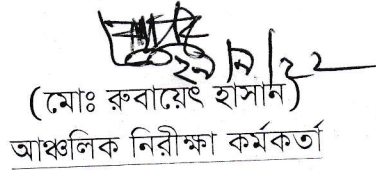 (মোঃ রুবায়েৎ হাসান)
আঞ্চলিক নিরীক্ষা কর্মকর্তা